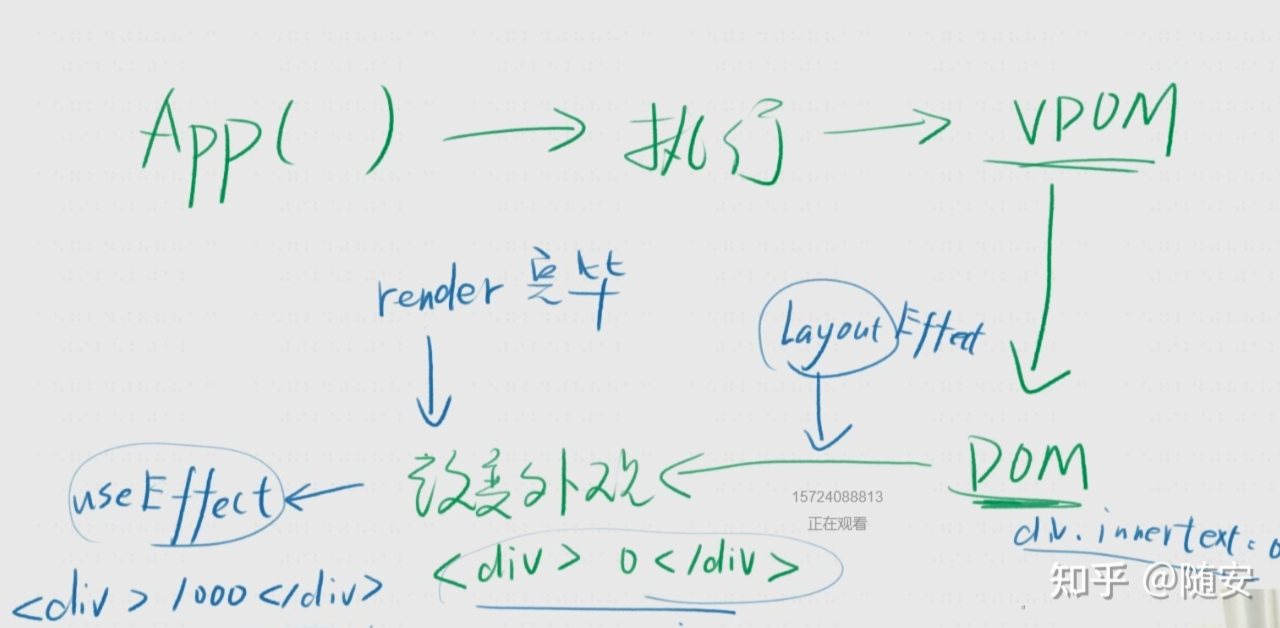 App( ) → 执行 → VDOM
render 完毕
LayoutEffect
useEffect ← 改变外观 ← DOM
15724088813
正在观看
div.innertext=0
<div> 0 </div>
<div> 1000 </div>
知乎 @随安